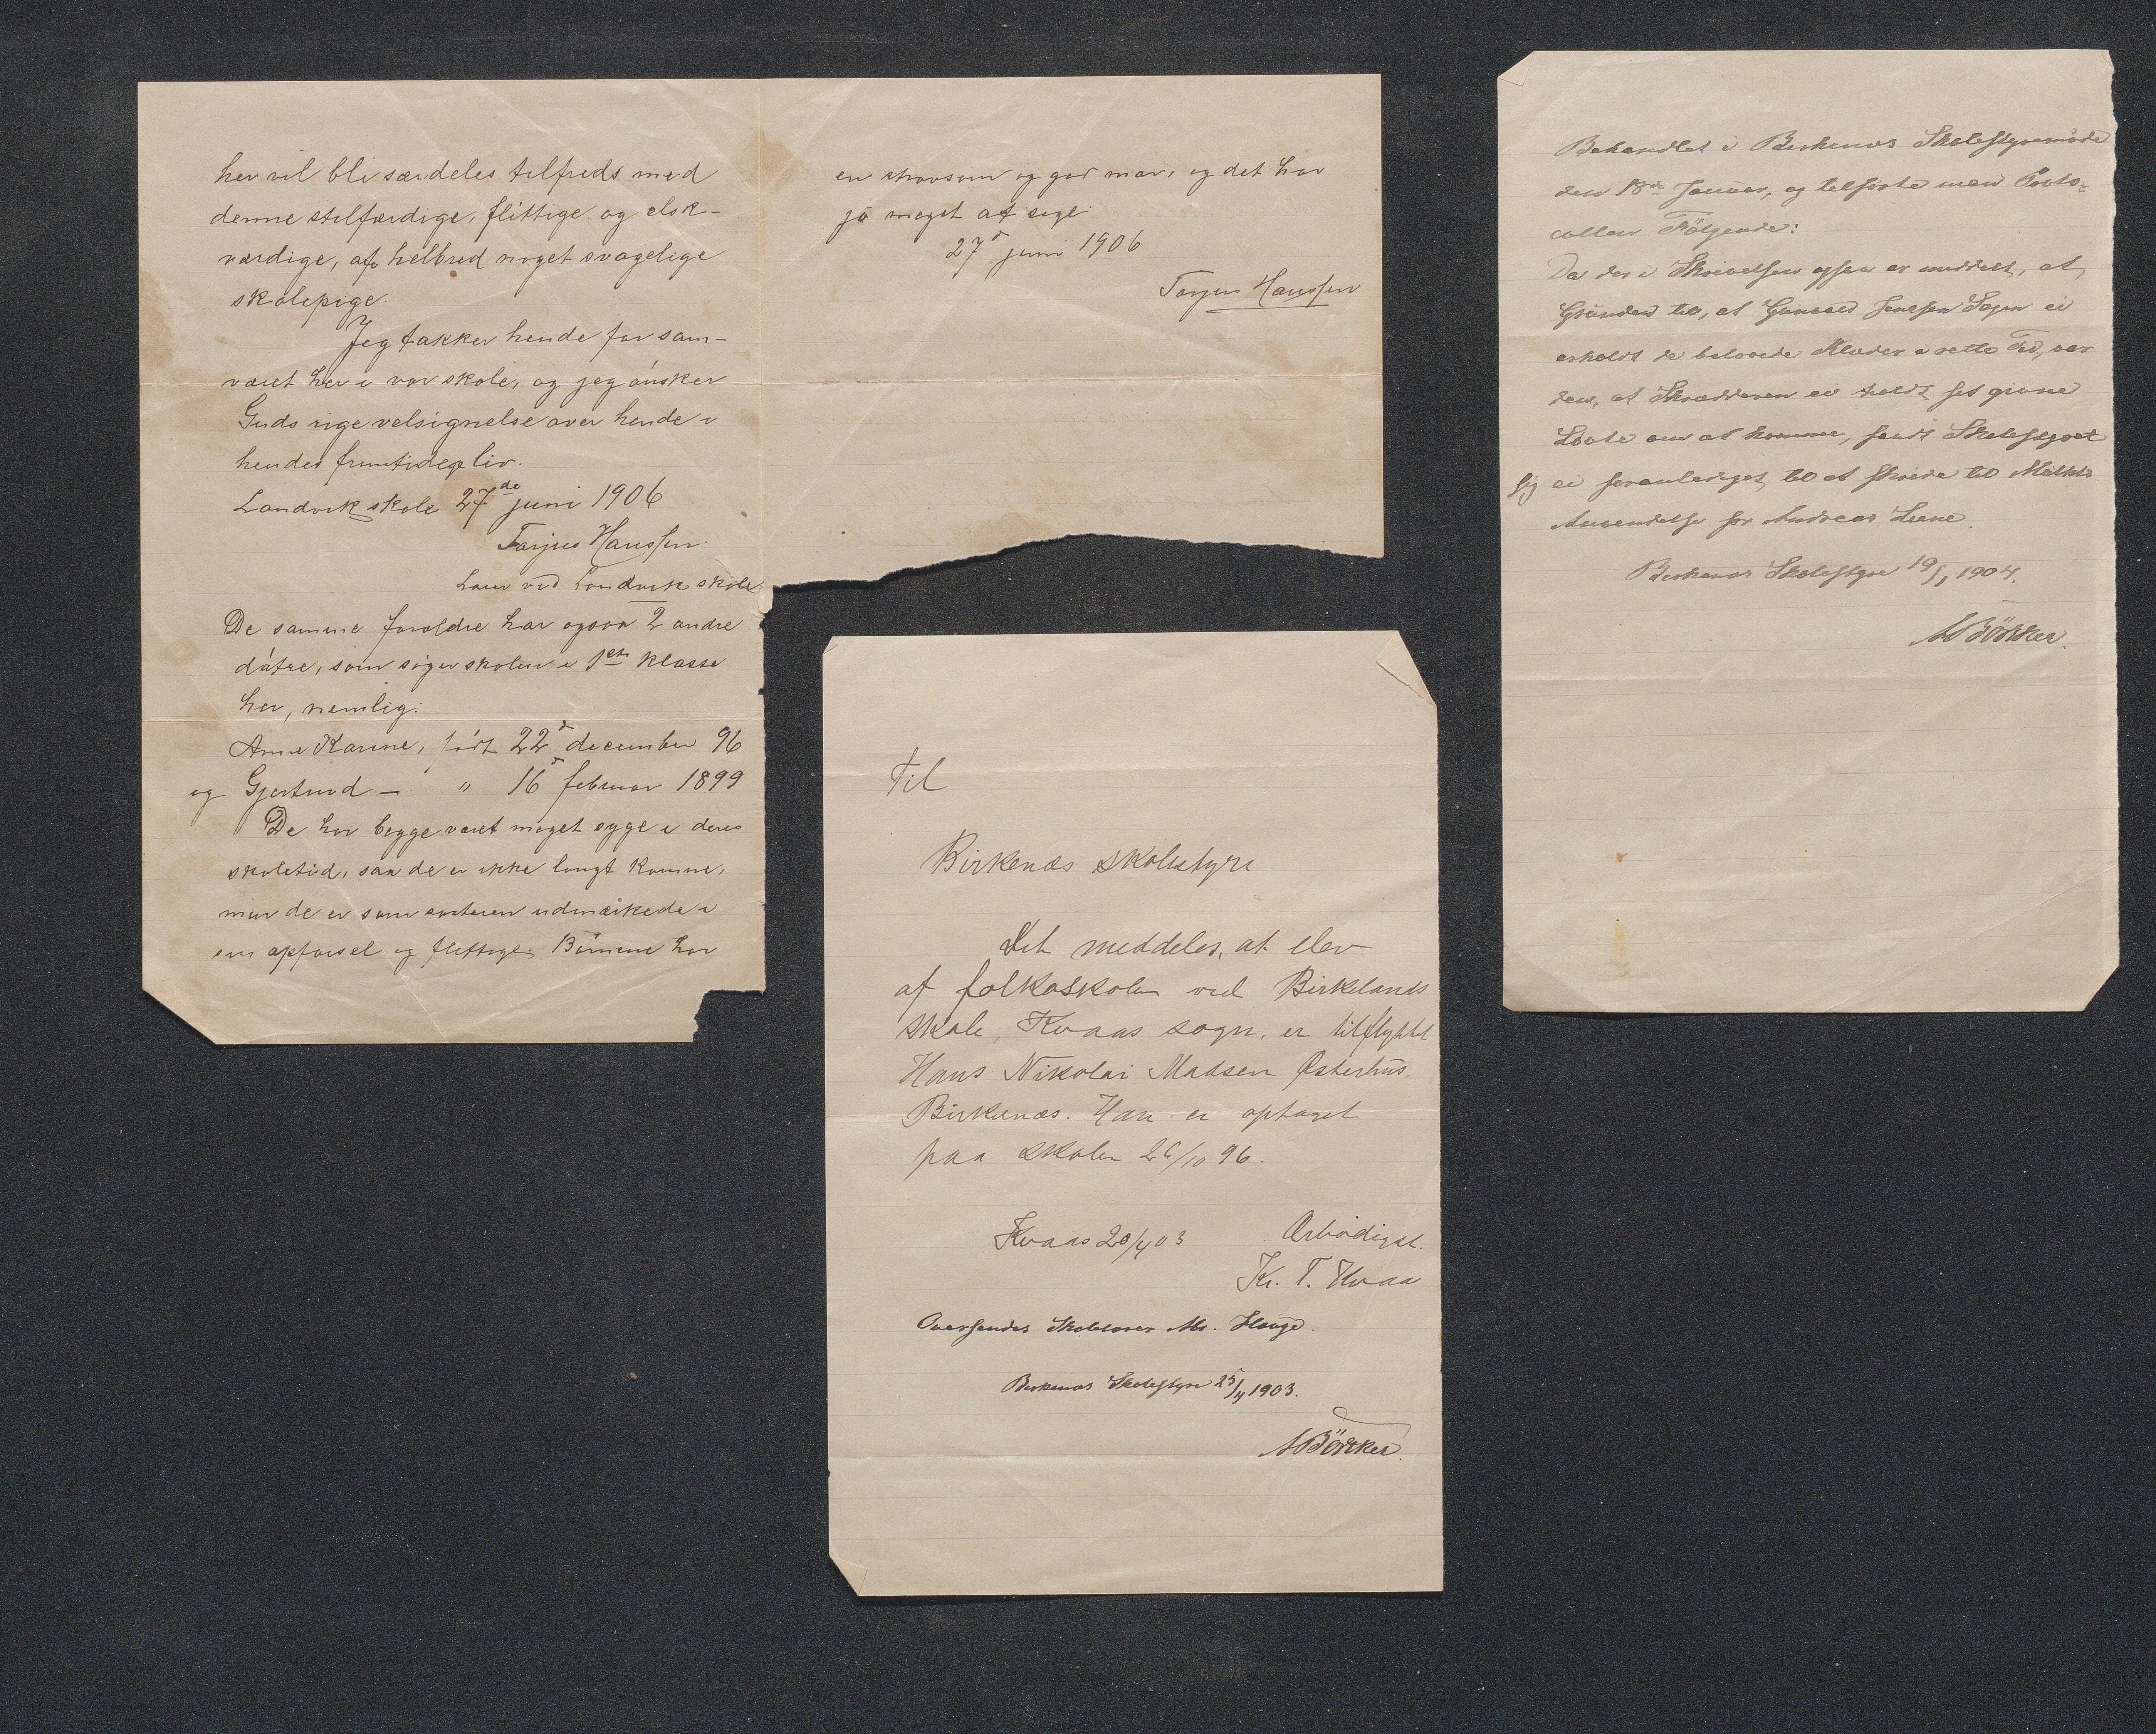 her vil bli særdeles tilfreds med
denne stilfærdige, flittige og elsk-
værdige, af helbred noget svagelige
skolepige.
Jeg takker hende for sam-
været her i vor skole, og jeg ønsker
Guds rige velsignelse over hende i
hendes fremtidige liv.
Landvik skole 27de juni 1906
Tarjus Hanssen.
Lærer ved Landvik skole
De samme forældre har ogsaa 2 andre
døtre, som søger skolen i 1ste klasse
her, nemlig:
Anne Karine, født 22d december 96
og Gjertrud — " 16d februar 1899
De har begge været meget syge i deres
skoletid, saa de er ikke langt komne,
men de er som søsteren udmærkede i
opførsel og flittige. Børnene har
en strævsom og god mor, og det har
jo meget at sige.
27d juni 1906
Tarjus Hanssen
Til
Birkenæs skolestyre
Det meddeles, at elev
af folkeskolen ved Birkelands
skole, Kvaas sogn, er tilflyttet
Hans Nikolai Madsen Østerhus,
Birkenæs. Han er optaget
paa skolen 26/10 96.
Kvaas 20/4 03 Ærbødigst.
Kr. T. Kvaa
Oversendes Skolelærer Hr. Hauge.
Birkenæs Skolestyre 25/4 1903.
Børker.
Behandlet i Birkenæs Skolestyremøde
den 18de Januar, og tilførte man Proto-
collen Følgende:
Da der i Skrivelsen ogsaa er meddelt, at
Grunden til, at Gunvald Jensen ei
erholdt de belovede Klæder i rette Tid, var
den, at Skrædderen ei holdt sit givne
Løvte om at komme, fandt Skolestyret
sig ei foranlediget til at skride til Mulkts
Anvendelse for Andreas Liene.
Birkenæs Skolestyre 19/1 1904.
Børker.